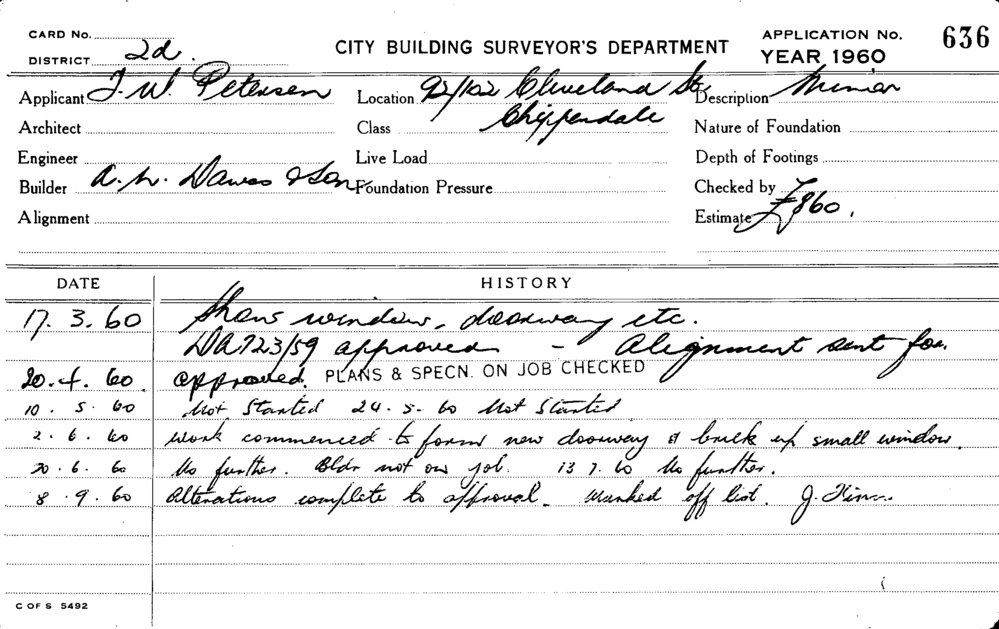 CARD No.
DISTRICT 2d.
CITY BUILDING SURVEYOR'S DEPARTMENT
APPLICATION No. 636
YEAR 1960
Applicant F. W. Petersen
Location 92/102 Cleveland St,
Chippendale
Description Minor
Architect
Class
Nature of Foundation
Engineer
Live Load
Depth of Footings
Builder A. W. Dawes & Son
Foundation Pressure
Checked by
Alignment
Estimate £860.
DATE HISTORY
17. 3. 60 Show window, doorway etc.
DA 723/59 approved - Alignment sent for.
20. 4. 60. approved. PLANS & SPECN. ON JOB CHECKED
10. 5. 60 Not Started 24. 5. 60 Not Started
2. 6. 60 Work commenced to form new doorway & brick up small window.
20. 6. 60 No further. Bldr not on job. 13 7. 60 No further.
8. 9. 60 Alterations complete to approval. Marked off list. J.
C OF S 5492